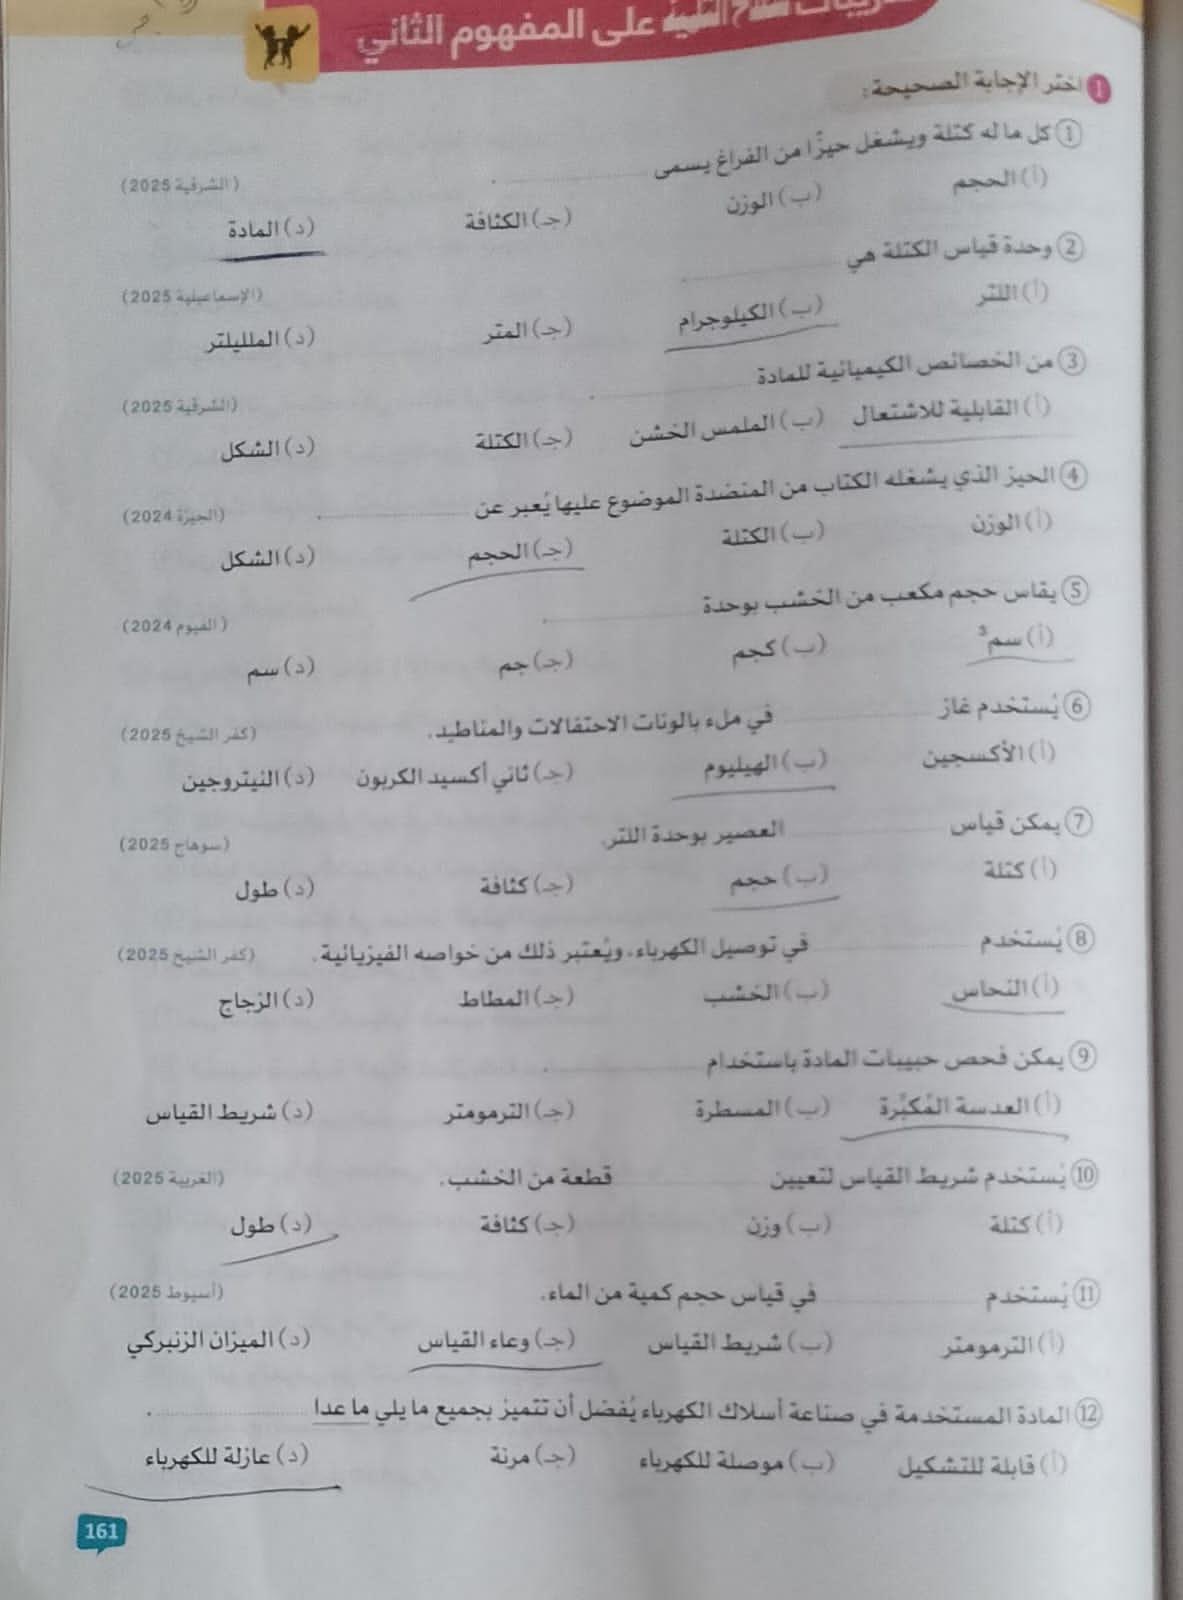 تدريبات سلاح التلميذ على المفهوم الثاني
1 اختر الإجابة الصحيحة:
① كل ما له كتلة ويشغل حيزًا من الفراغ يسمى .................... . (الشرقية 2025)
(أ) الحجم (ب) الوزن (جـ) الكثافة (د) المادة
② وحدة قياس الكتلة هي .................... . (الإسماعيلية 2025)
(أ) اللتر (ب) الكيلوجرام (جـ) المتر (د) الملليلتر
③ من الخصائص الكيميائية للمادة .................... . (الشرقية 2025)
(أ) القابلية للاشتعال (ب) الملمس الخشن (جـ) الكتلة (د) الشكل
④ الحيز الذي يشغله الكتاب من المنضدة الموضوع عليها يُعبر عن .................... . (الجيزة 2024)
(أ) الوزن (ب) الكتلة (جـ) الحجم (د) الشكل
⑤ يقاس حجم مكعب من الخشب بوحدة .................... . (الفيوم 2024)
(أ) سم³ (ب) كجم (جـ) جم (د) سم
⑥ يُستخدم غاز .................... في ملء بالونات الاحتفالات والمناطيد. (كفر الشيخ 2025)
(أ) الأكسجين (ب) الهيليوم (جـ) ثاني أكسيد الكربون (د) النيتروجين
⑦ يمكن قياس .................... العصير بوحدة اللتر. (سوهاج 2025)
(أ) كتلة (ب) حجم (جـ) كثافة (د) طول
⑧ يُستخدم .................... في توصيل الكهرباء، ويُعتبر ذلك من خواصه الفيزيائية. (كفر الشيخ 2025)
(أ) النحاس (ب) الخشب (جـ) المطاط (د) الزجاج
⑨ يمكن فحص حبيبات المادة باستخدام .................... .
(أ) العدسة المُكبِّرة (ب) المسطرة (جـ) الترمومتر (د) شريط القياس
⑩ يُستخدم شريط القياس لتعيين .................... قطعة من الخشب. (الغربية 2025)
(أ) كتلة (ب) وزن (جـ) كثافة (د) طول
⑪ يُستخدم .................... في قياس حجم كمية من الماء. (أسيوط 2025)
(أ) الترمومتر (ب) شريط القياس (جـ) وعاء القياس (د) الميزان الزنبركي
⑫ المادة المستخدمة في صناعة أسلاك الكهرباء يُفضل أن تتميز بجميع ما يلي ما عدا .................... .
(أ) قابلة للتشكيل (ب) موصلة للكهرباء (جـ) مرنة (د) عازلة للكهرباء
161